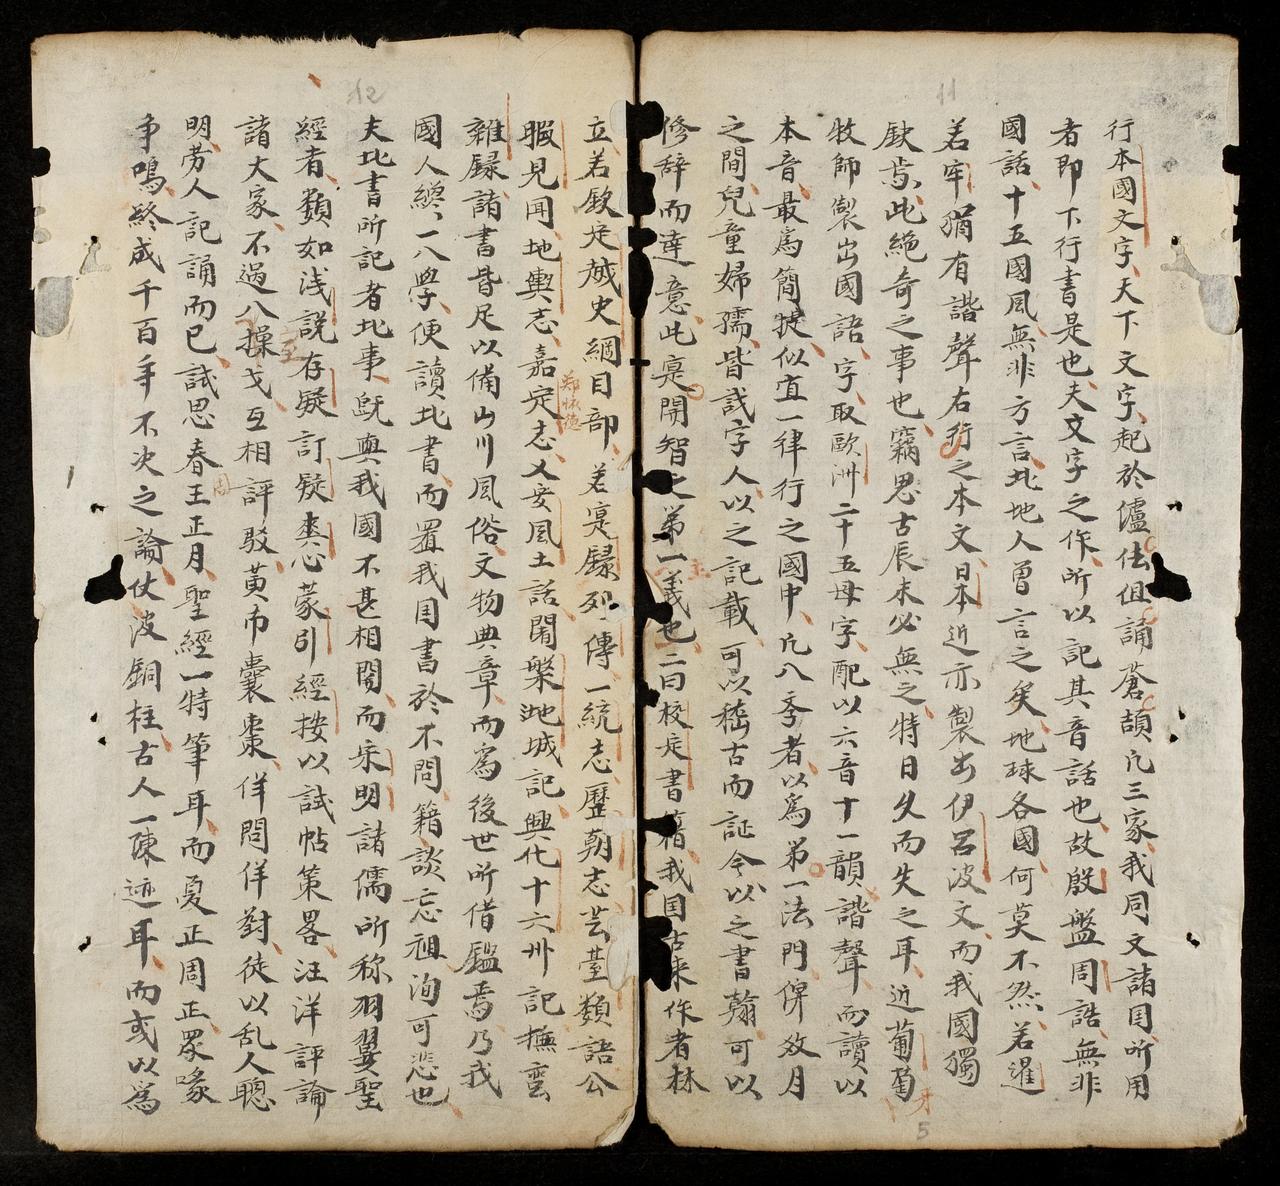 行本國文字天下文字起於爐佉伹誦蒼頡凡三家我同文諸囯所用
者即下行書是也夫文字之作所以記其音話也故殷盤周誥無非
國話十五國風無非方言北地人曾言之矣地球各國何莫不然若暹
若牢猬有諧聲右行之本文日本近亦製出伊呂波文而我國獨
欽焉此絕奇之事也竊思古辰未必無之特日久而失之耳近葡萄牙
牧師製出國語字取歐洲二十五母字配以六音十一韻諧聲而讀以
本音最爲簡捷似宜一律行之國中凡八季者以爲第一法門俾效月
之間兒童婦孺皆試字人以之記載可以嵇古而証今以之書翰可以
修辞而達意此寔開智之第一義也二曰校定書籍我囯古來作者林
立若欽定越史綱目部若寔錄列傳一統志歷朝志芸臺類語公
暇見闻地輿志嘉定志又安風土話閑槃地城記興化十六州記撫蛮
鄭懷德
雜録諸書皆足以備山川風俗文物典章而爲後世所借鑑焉乃我
國人纔一八學便讀北書而置我囯書於不問籍談忘祖洵可悲也
夫北書所記者北事旣與我國不甚相関而宋明諸儒所称羽翼聖
經者類如浅說存疑訂疑裘心蒙引經按以試帖策畧汪洋評論
諸大家不過八操戈互相評駁黄巾囊棗佯問佯對徒以乱人聰
室
明劳人記誦而已試思春王正月聖經一特筆耳而夏正周正眾喙
周
争鳴終成千百年不决之論伏波銅柱古人一陳迹耳而或以爲
12
11
主
5